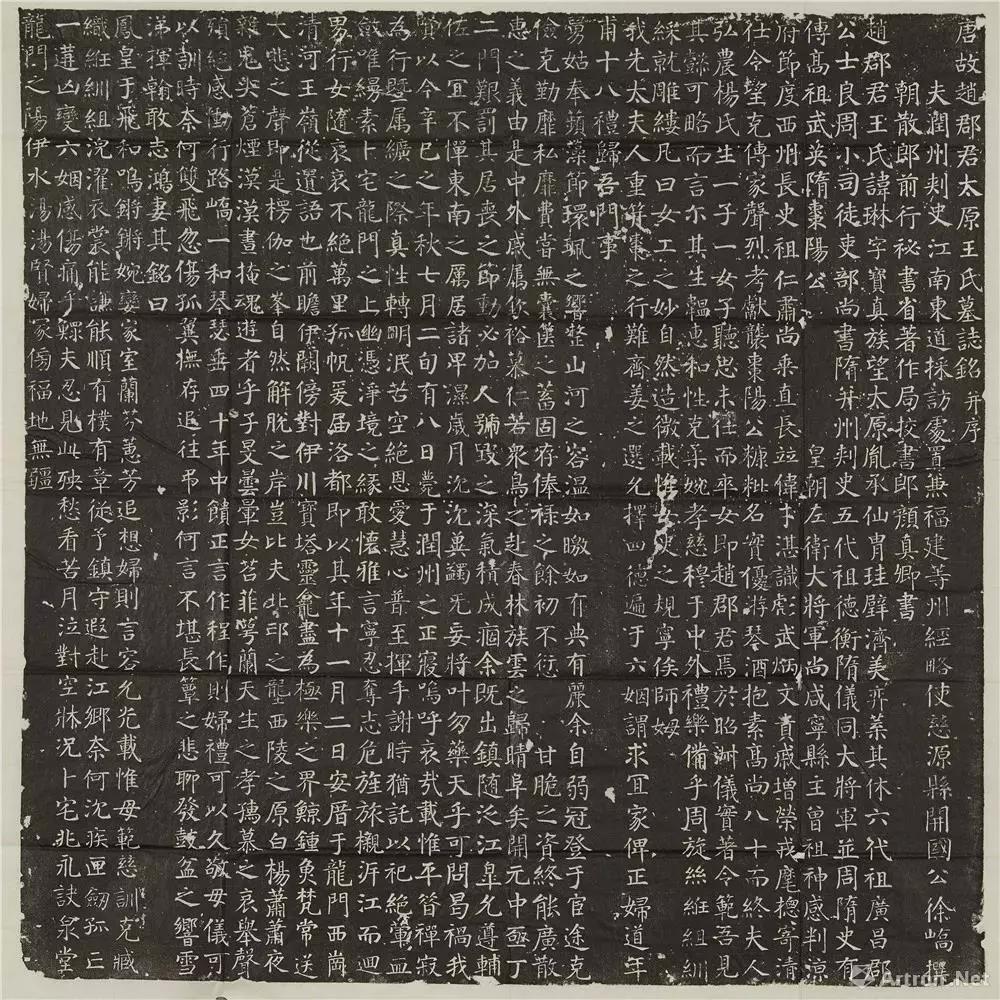 唐故趙郡君太原王氏墓誌銘 并序
夫潤州刾史江南東道採訪處置兼福建等州經略使慈源縣開國公徐嶠撰
朝散郎前行秘書省著作局校書郎顏真卿書
趙郡君王氏諱琳字寶真族望太原胤承仙胄珪璧濟美弈葉其休六代祖廣昌郡
公士良周小司徒吏部尚書隋并州刾史五代祖德衡隋儀同大將軍並周隋史有
傳高祖武英隋棗陽公 皇朝左衛大將軍尚咸寧縣主曾祖神感判涼
府節度西州長史祖仁肅尚乘直長竝偉才湛識彪武炳文貴戚增榮戎麾揔寄清
仕令望克傳家聲烈考獻襲棗陽公糠粃名實優游琴酒抱素高尚八十而終夫人
弘農楊氏生一子一女子聽忠未仕而卒女即趙郡君焉於昭淑儀實著令範吾見
其餘可略而言尒其生韞惠和性克柔婉孝慈穆于中外禮樂備乎周旋絲絍組紃
綵就雕縷凡曰女工之妙自然造微載惟之規寧俟師姆
我先太夫人重笄棗之行難齊姜之選允擇四德遍于六姻謂求宜家俾正婦道年
甫十八禮歸吾門事
舅姑奉蘋藻節環珮之響整山河之容溫如暾如有典有麗余自弱冠登于官途克
儉克勤靡私靡費甞無囊篋之蓄固存俸祿之餘初不衒 甘脆之資終能廣散
惠之義由是中外戚属欽裕慕仁若眾鳥之赴春林族雲之歸晴阜矣開元中亟丁
二門艱罰其居喪之節動必加人號毀之深氣積成痼余既出鎮隨泛江皐允尊輔
佐之宜不憚東南之厲居諸卑濕歲月沈沈冀蠲旡妄將叶勿藥天乎可問曷禍我
賢以今辛巳之年秋七月二旬有八日薨于潤州之正寢嗚呼哀哉載惟平昔禪寂
為行暨属纊之際真性轉明泯苦空絕恩愛慧心普至揮手謝時猶託以祀絕葷血
斂唯縵素卜宅龍門之上幽憑淨境之緣敢懷雅言寧忍奪志危旌旅櫬泝江而迴
男行女隨哀哀不絕萬里孤帆爰届洛都即以其年十一月二日安厝于龍門西崗
清河王嶺從遷語也前瞻伊闕傍對伊川寶塔靈龕盡為極樂之界鯨鍾魚梵常送
大悲之聲即是楞伽之峯自然解脫之岸豈比夫北邙之壠西陵之原白楊蕭蕭夜
聚鬼哭蒼煙漠漠晝掩魂遊者乎子旻曇暈女苕菲萼蘭天生之孝獳慕之哀舉聲
殞絕感慟行路嶠一和琴瑟垂四十年中饋正言作程作則婦禮可以久敬母儀可
以訓時奈何雙飛忽傷孤翼撫存追往弔影何言不堪長簟之悲聊發鼓盆之響雪
涕揮翰敢志鴻妻其銘曰
鳳皇于飛和鳴鏘鏘婉孌家室蘭芬蕙芳追想婦則言容允光載惟母範慈訓克臧
織絍紃組浣濯衣裳能謙能順有樸有章從予鎮守遐赴江鄉奈何沈疾匣劒孤亡
一遘凶變六姻感傷痛乎鰥夫忍見此殃愁看苦月泣對空牀況卜宅兆永訣泉堂
龍門之陽伊水湯湯賢婦冢傍福地無疆
Artron.Net